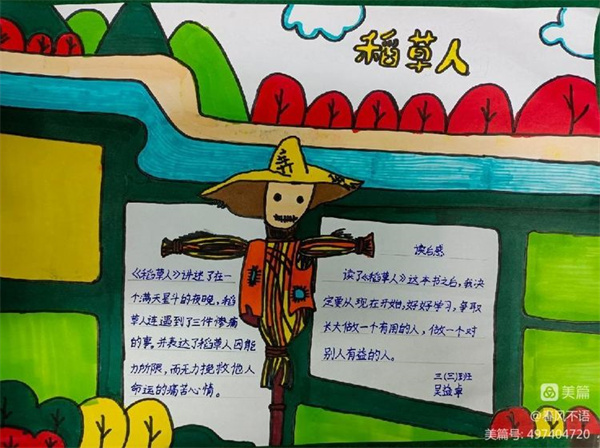 稻草人
《稻草人》讲述了在一
个满天星斗的夜晚，稻
草人连遇到了三件惨痛
的事，并表达了稻草人因能
力所限，而无力挽救他人
命运的痛苦心情。
读后感
读了《稻草人》这本书之后，我决
定要从现在开始，好好学习，争取
长大做一个有用的人，做一个对
别人有益的人。
三（三）班
吴益卓
美篇
@春风不语
美篇号：497404720